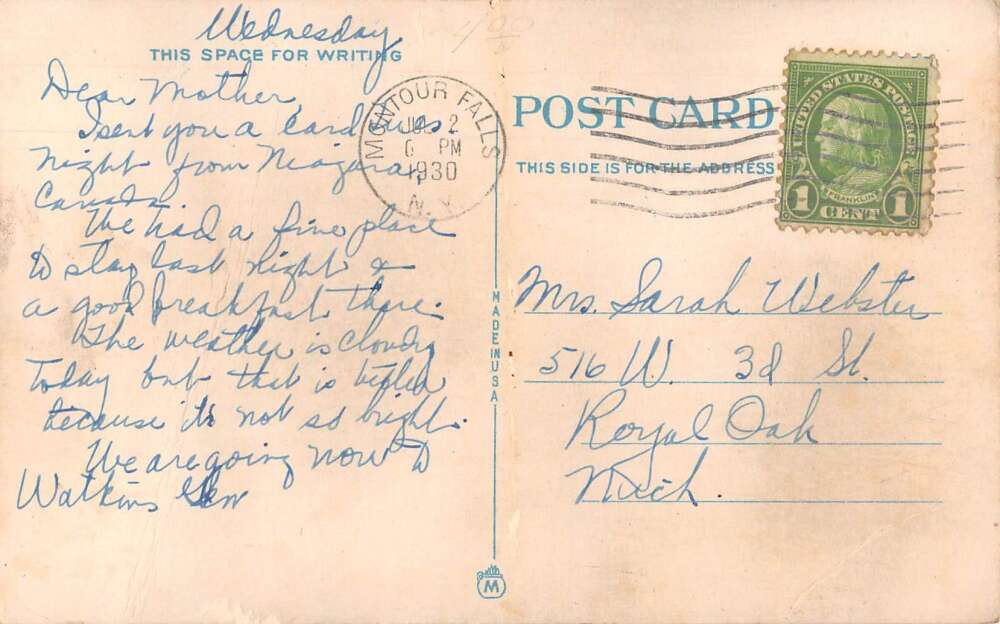 Wednesday
THIS SPACE FOR WRITING
Dear Mother,
I sent you a card
night from Niagara,
Canada.
We had a fine place
to stay last night &
a good breakfast there.
The weather is cloudy
today but that is better
because it's not so bright.
We are going now to
Watkins Glen
MONTOUR FALLS
2
PM
1930
N. Y.
MADE IN USA
M
POST CARD
THIS SIDE IS FOR THE ADDRESS
UNITED STATES POSTAGE
FRANKLIN
1 CENT 1
Mrs. Sarah Webster
516 W. 3d St.
Royal Oak
Mich.